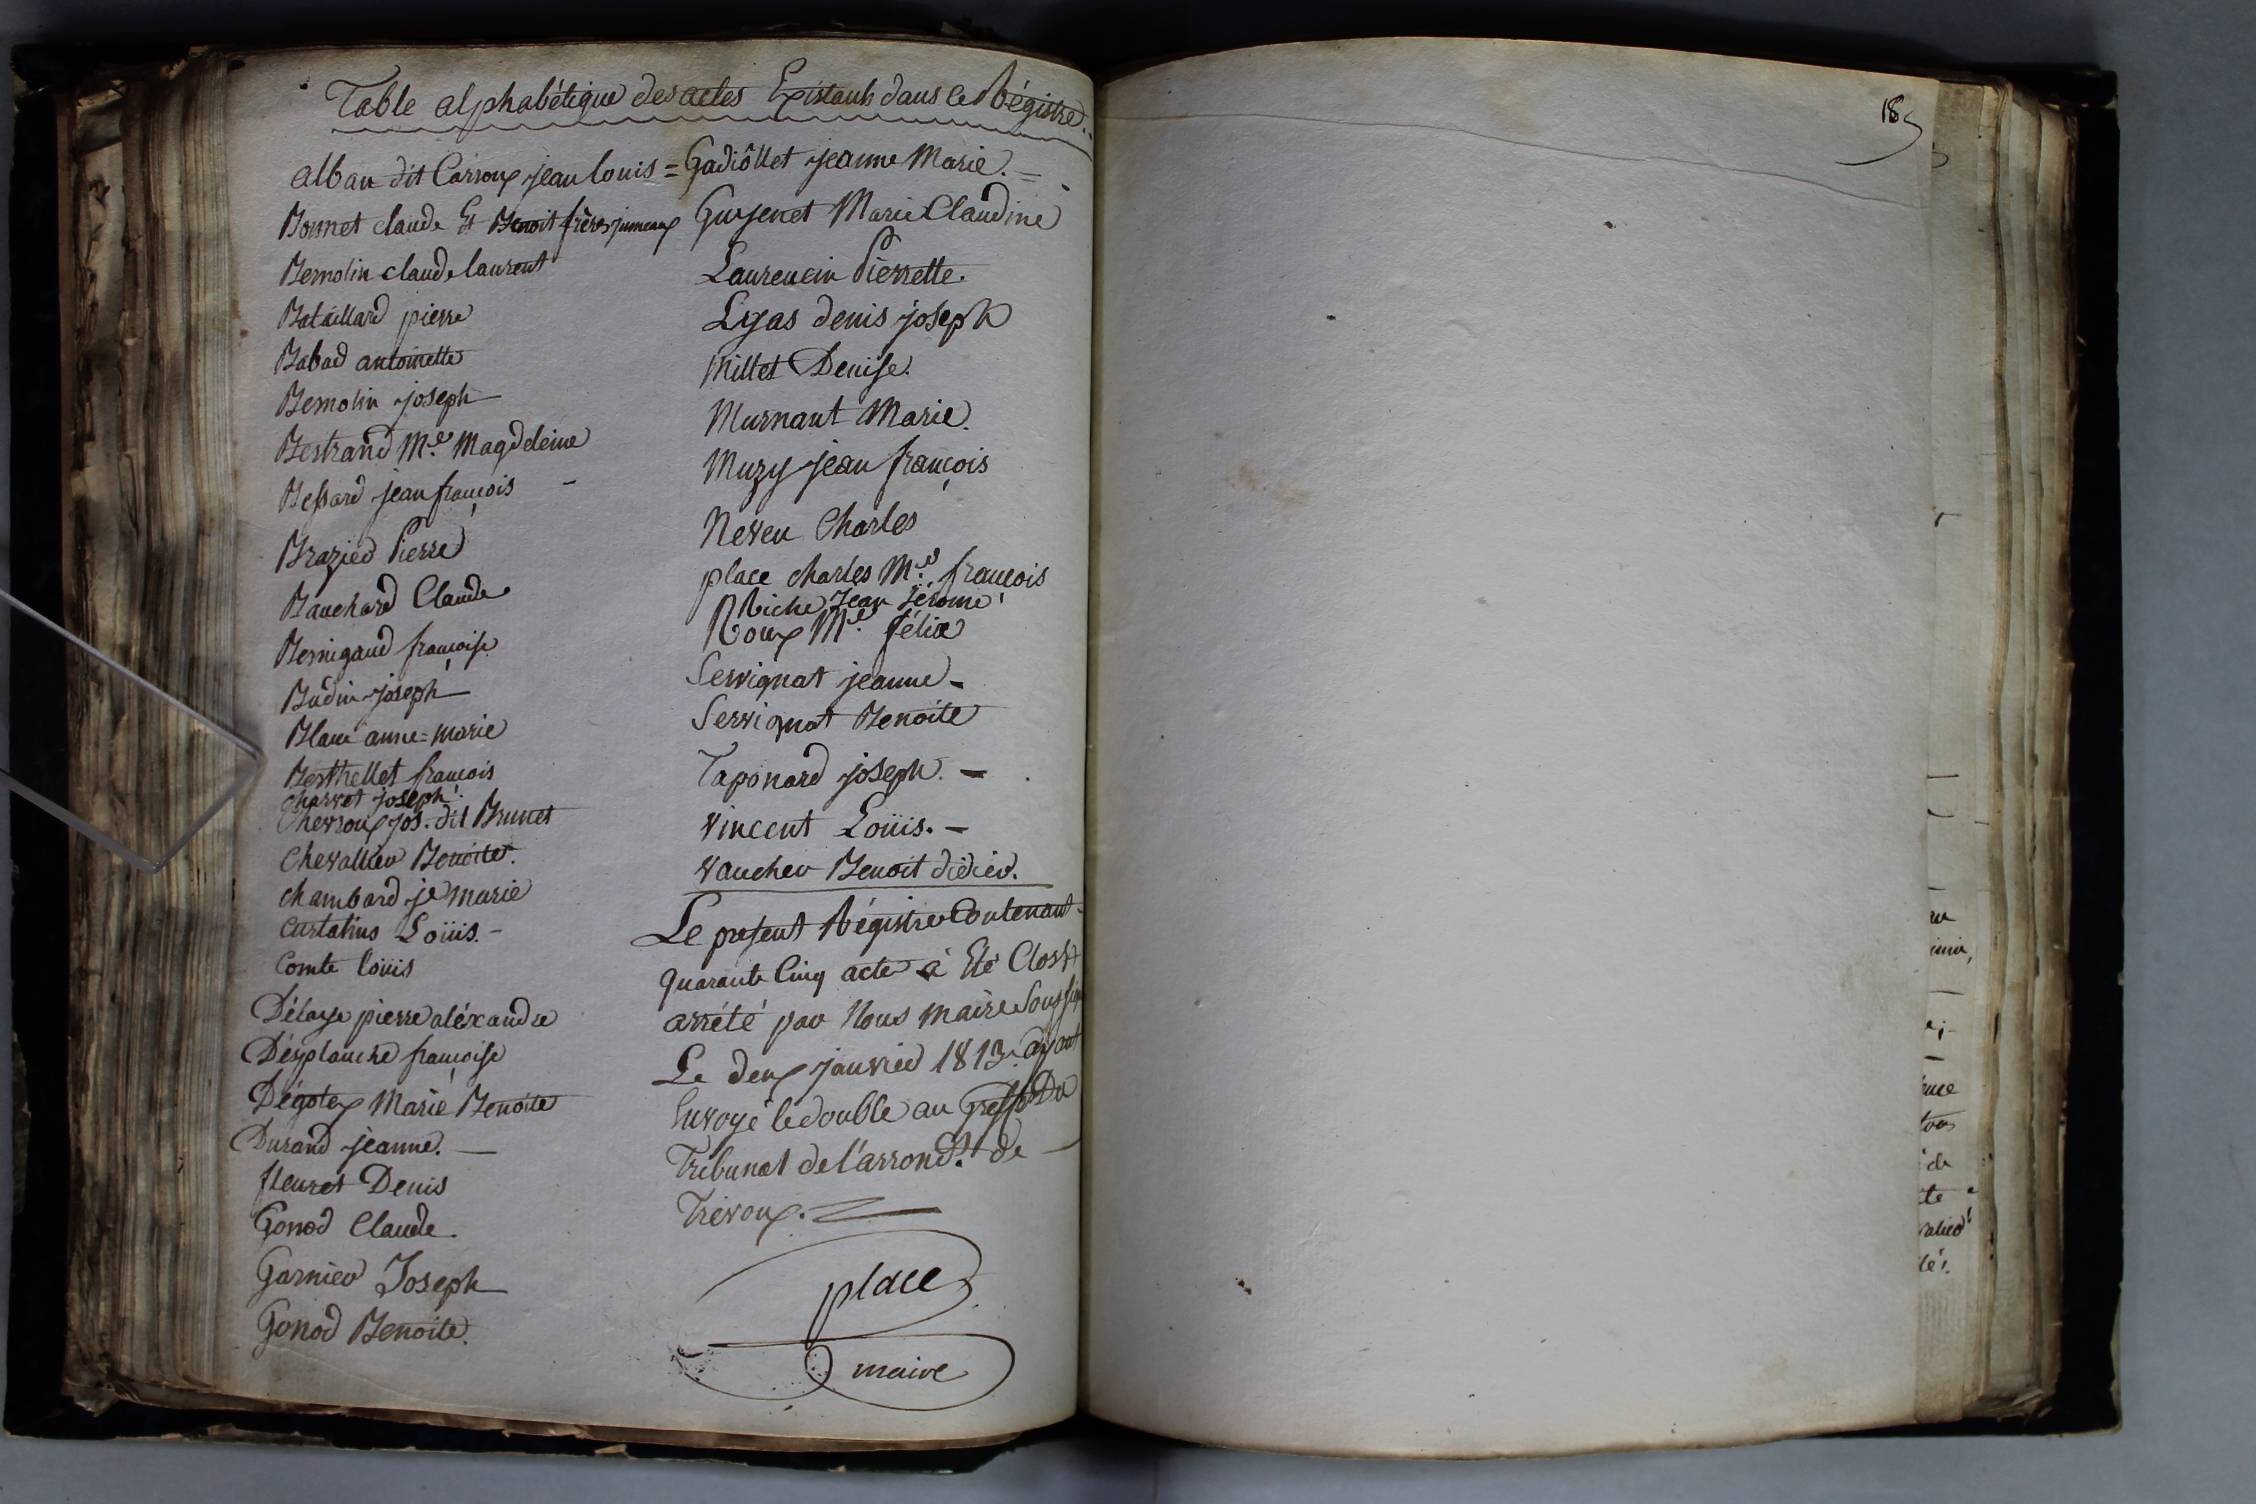 Table alphabétique des actes Existants dans ce Régistre.
alban dit Carroux jean louis =
Bonnet claude Et Benoit frères jumeaux
Bernolin claude laurent
Bataillard pierre
Babad antoinette
Bernolin joseph
Bertrand Mie Magdeleine
Bessard jean françois -
Brazier Pierre
Bauchard Claude
Bernigaud françoise
Budin joseph
Blanc anne=marie
Berthellet françois
charvet joseph
Chevroux jos. dit Brunet
Chevallier Benoite.
chambard je marie
Curtatius Loüis. -
Comte loüis
Délaye pierre aléxandre
Désplanche françoise
Dégotex Marie Benoite
Durand jeanne. —
fleuret Denis
Gonod Claude.
Garnier Joseph
Gonod Benoite.
Gadiôllet jeanne Marie. =
Guyenet Marie Claudine
Laurencin Pierrette.
Lyas denis joseph
Millet Denise.
Murnant Marie.
Muzy jean françois
Neveu Charles
place charles Mie françois
Riche Jean Jérome
Roux Mie félix
Servignat jeanne -
Servignat Benoite
Taponard joseph. -
vincent Loüis. -
vaucher Benoit didier.
Le present Régistre Contenant
quarante Cinq acte à Eté Clos Et
arrété par Nous maire Sous
Le deux janvier 1813. ayant
Envoyé le double au Greffe Du
Tribunal de l'arrondt. de —
Trévoux.
place
maire
185